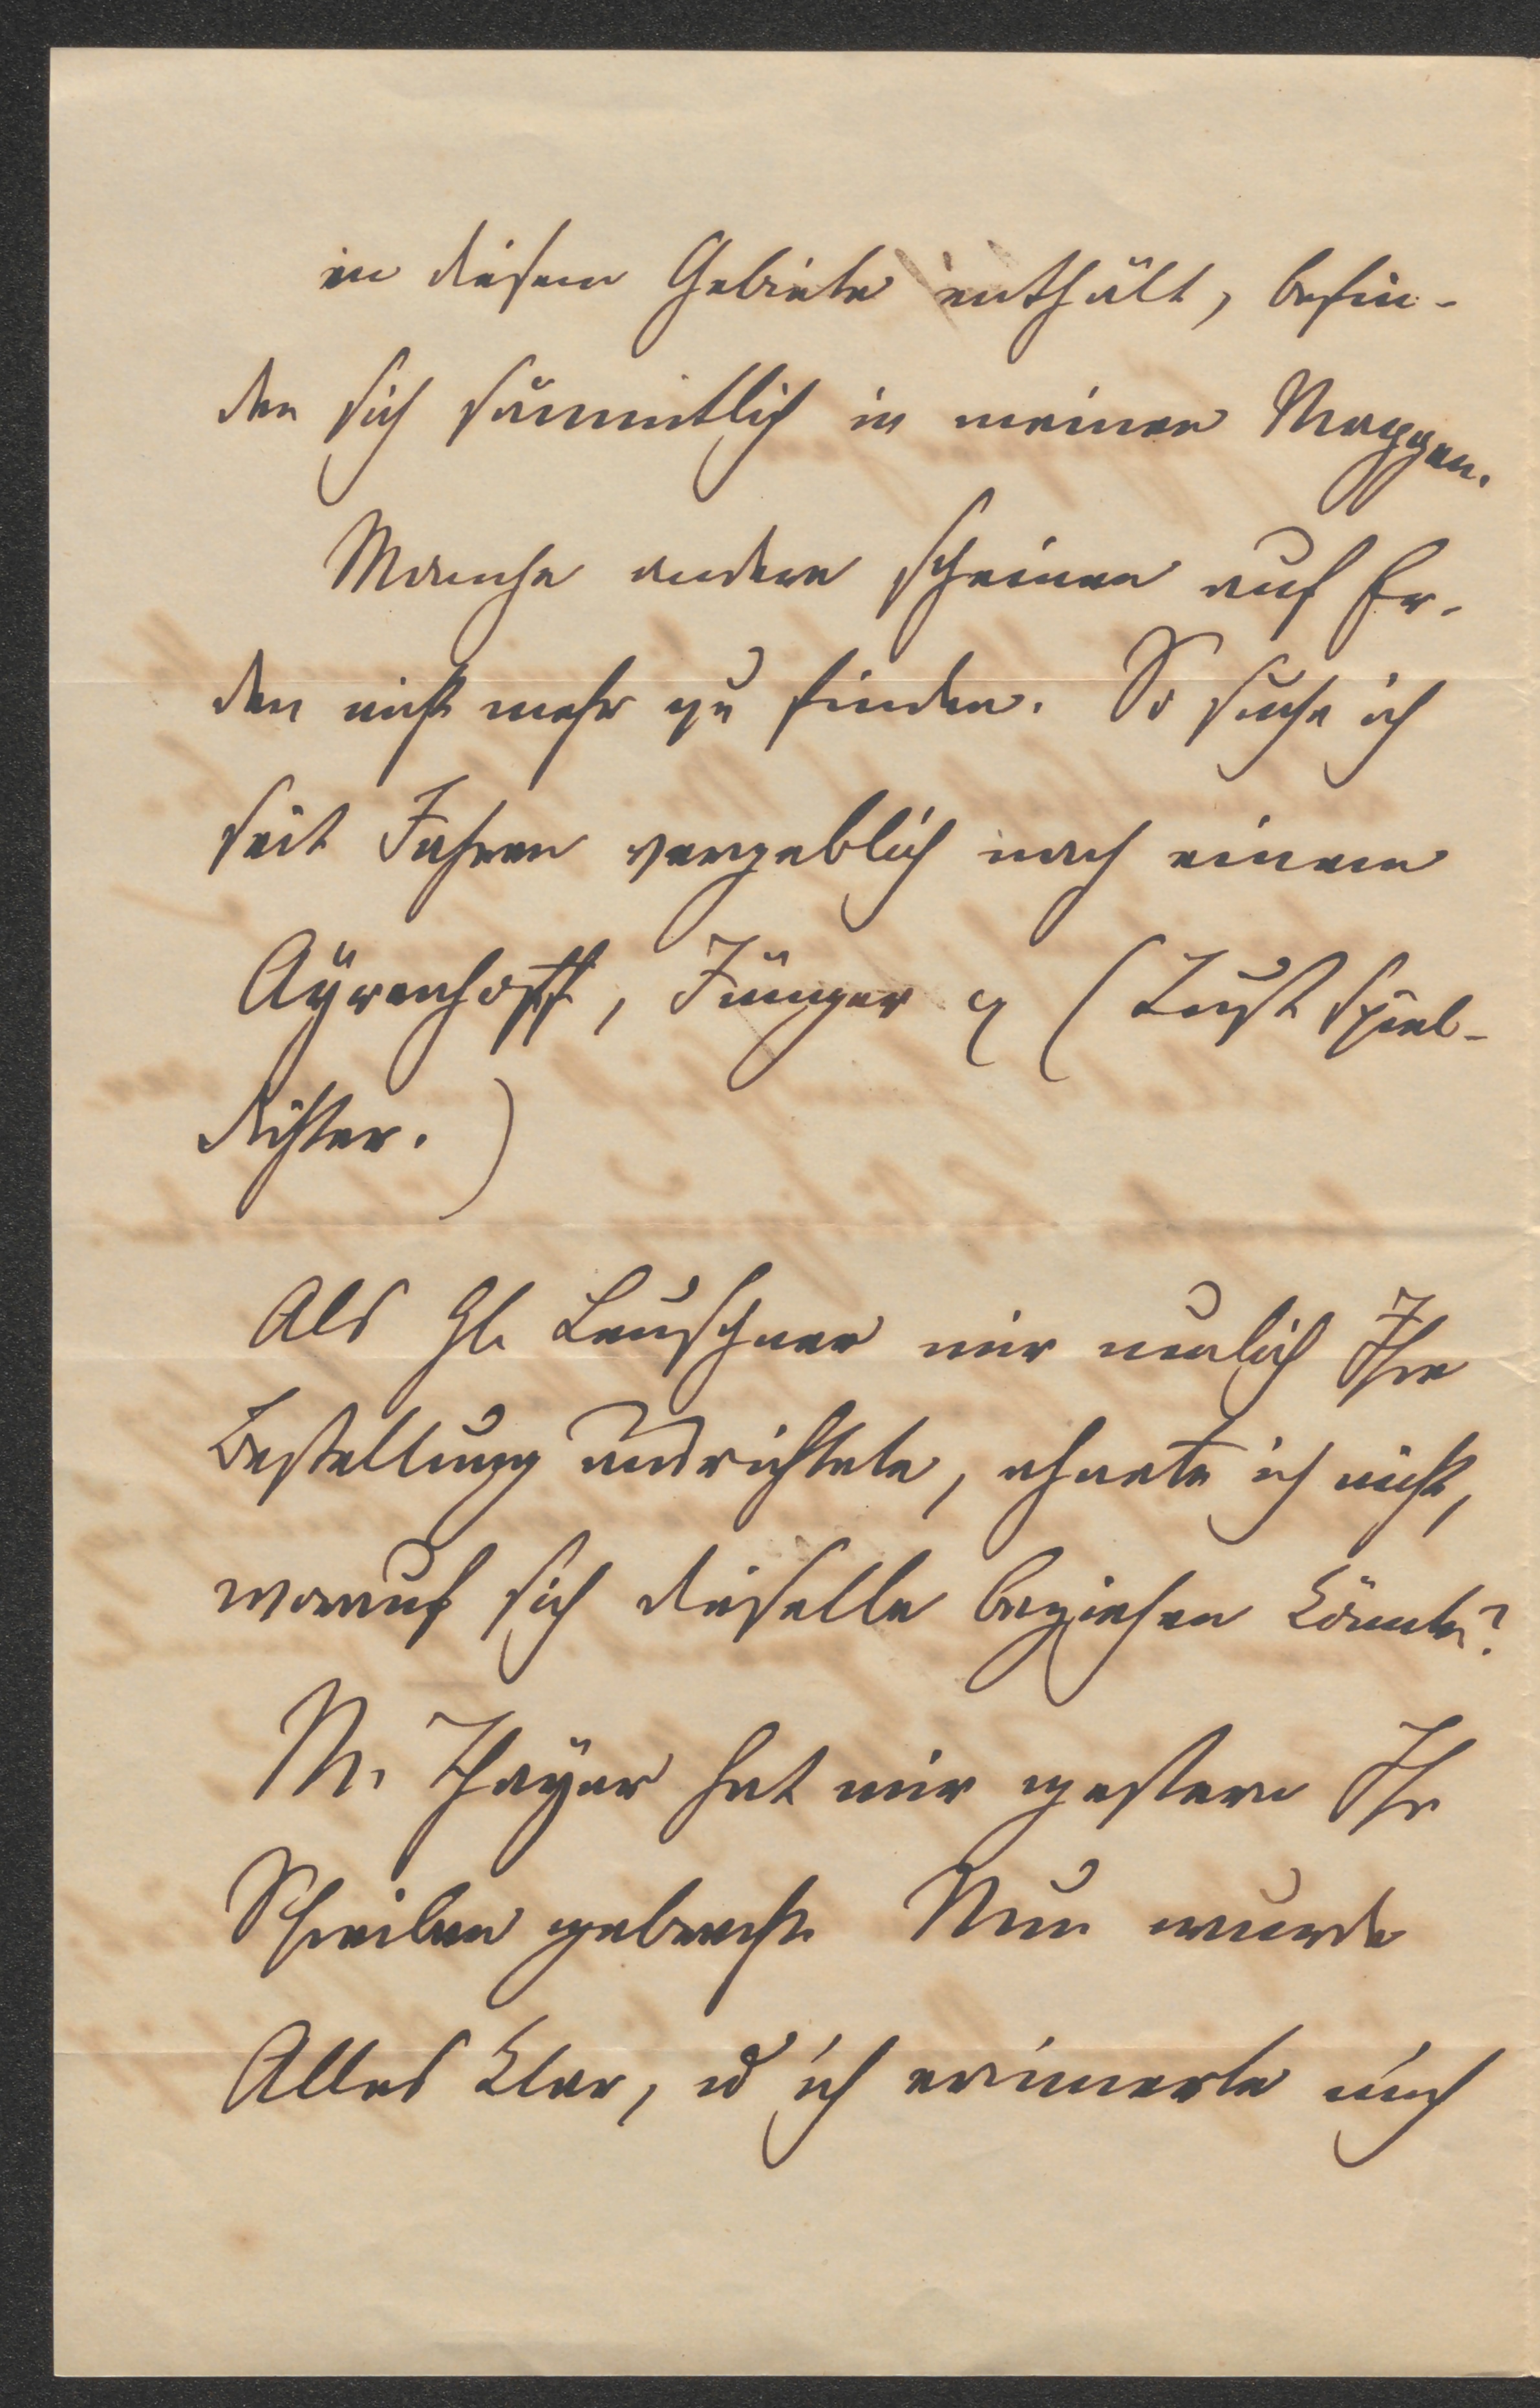 in diesem Gebiete enthält, befin-
den sich sämmtlich in meinen Mappen.
Manche andere scheinen auf Er-
den nicht mehr zu finden. So suche ich
seit Jahren vergeblich nach einem
Ayrenhoff, Jünger (Lustspiel-
dichter.)
Als Leuschner mir neulich Ihre
Bestellung ausrichtete, ahnete ich nicht,
worauf sich dieselbe beziehen könnte?
M. Thayer hat mir gestern Ihr
Schreiben gebracht. Nun wurde
Alles klar, u ich erinnerte mich